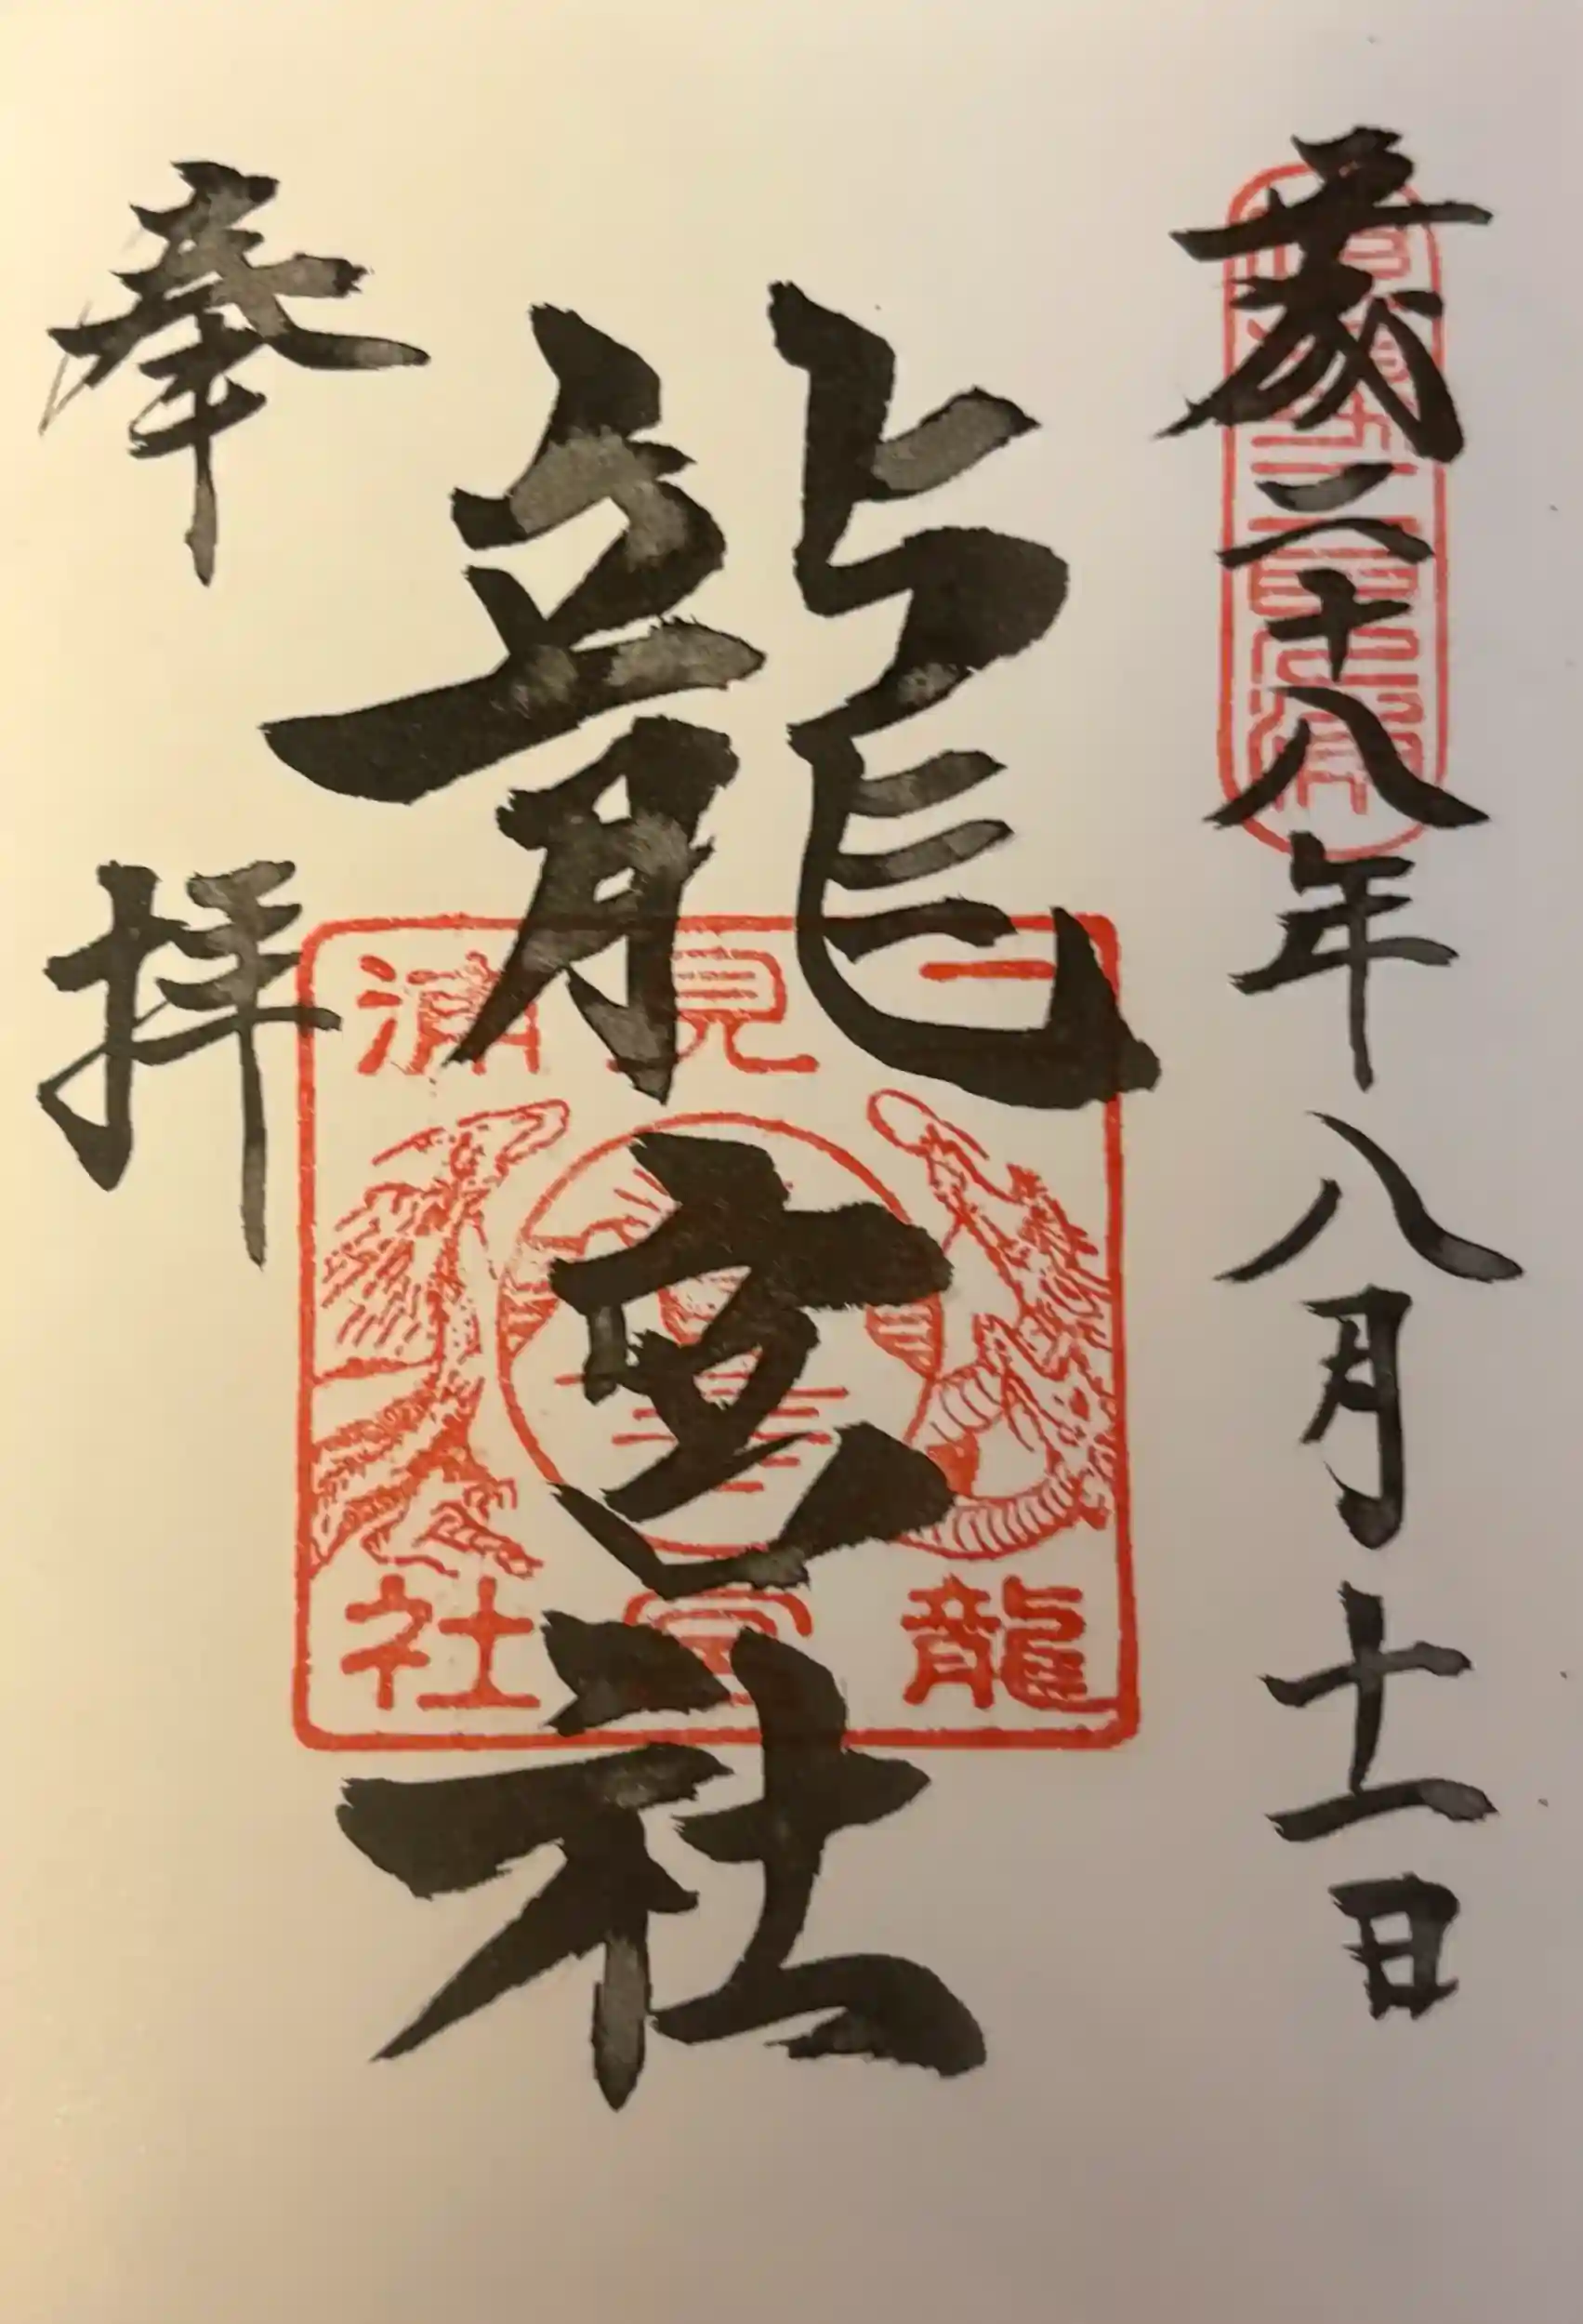 平成二十八年八月十一日
龍宮社
奉拝
二見浦
龍宮社